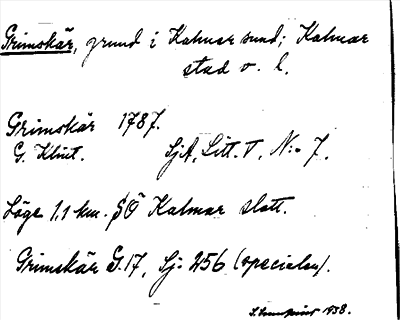 Grimskär, grund i Kalmar sund; Kalmar
stad o. l.
Grimskär 1787.
G. Klint. SjA, Litt. V, N:o 7.
Läge 1,1 km. SÖ Kalmar slott.
Grimskär G.17, Sj: 256 (specialen).
1938.